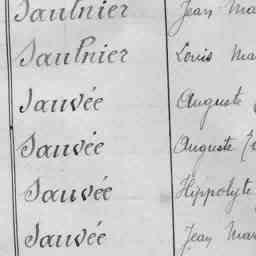 Saulnier Jean Ma
Saulnier Louis Ma
Sauvée Auguste
Sauvée Auguste
Sauvée Hippolyte
Sauvée Jean Mar